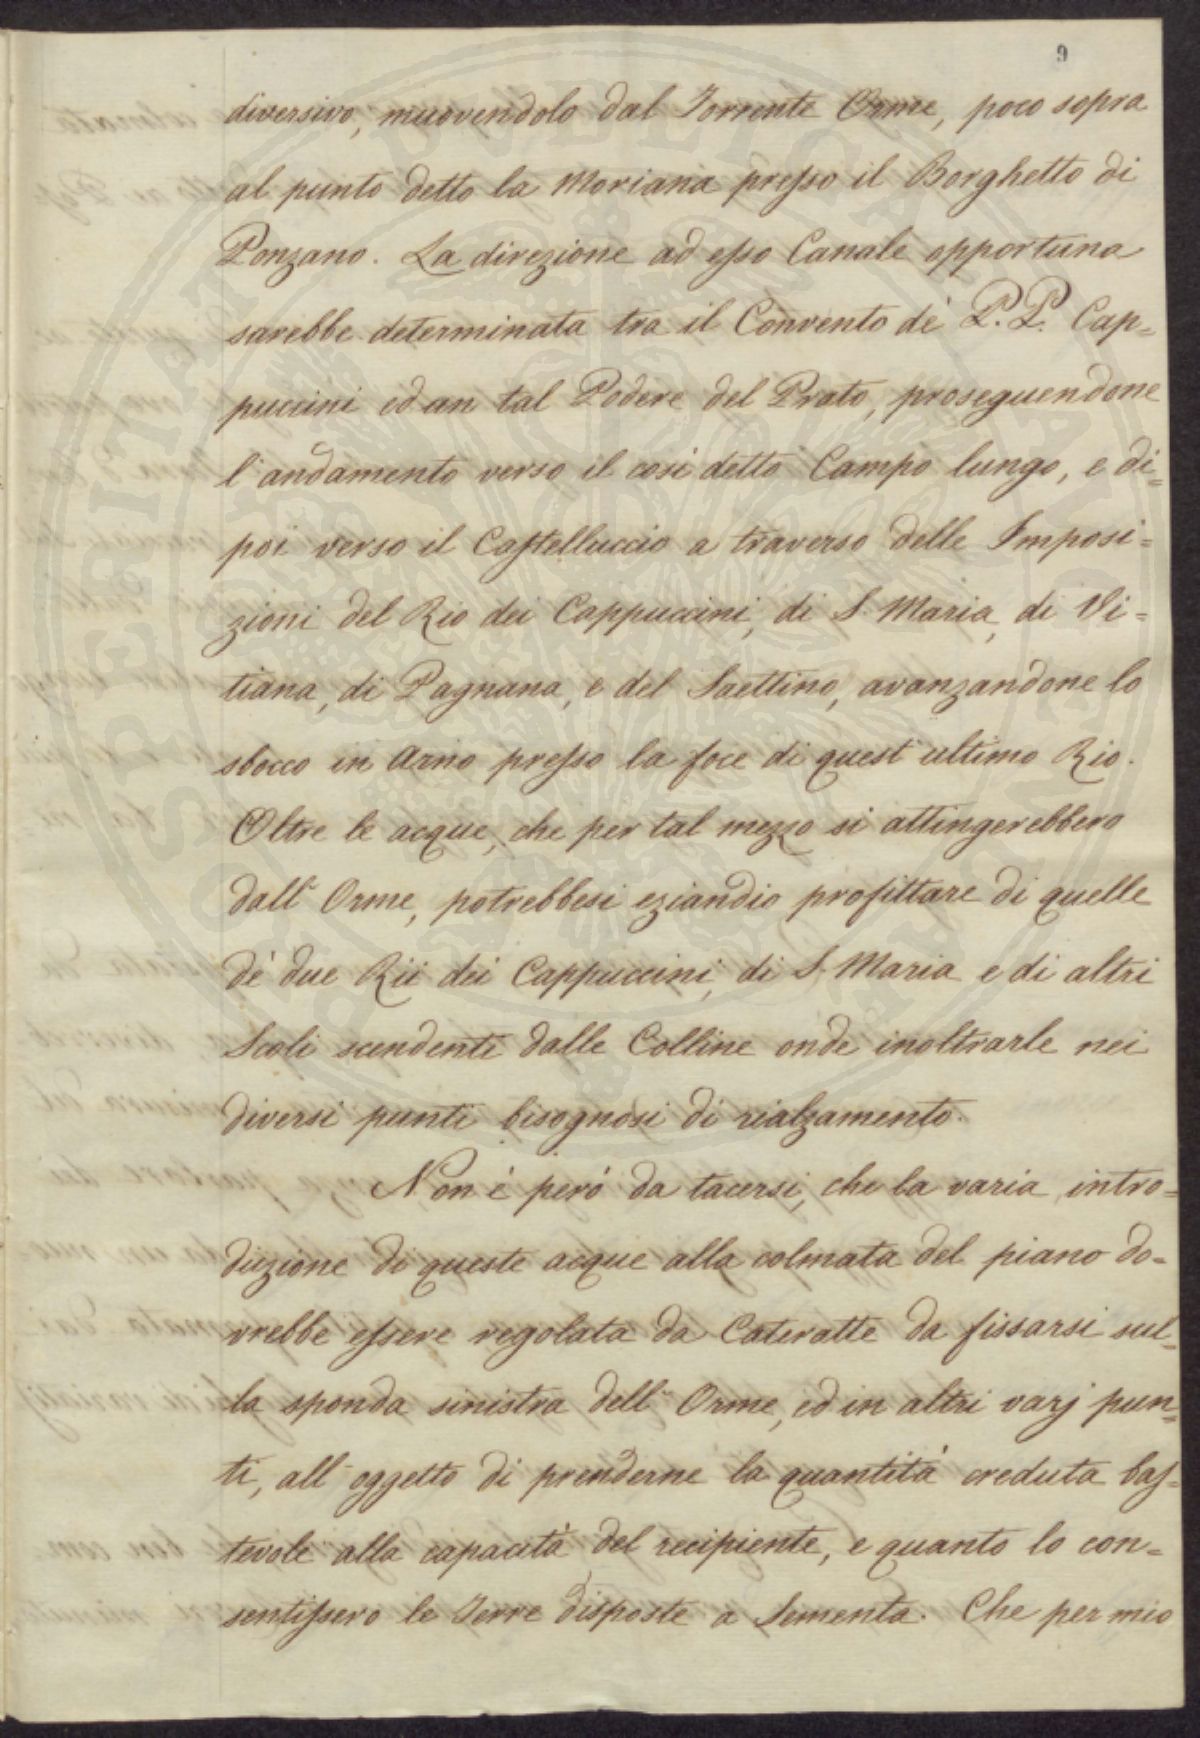 9
diversivo, muovendolo dal Torrente Orme, poco sopra
al punto detto la Moriana presso il Borghetto di
Ponzano. La direzione ad esso Canale opportuna
sarebbe determinata tra il Convento de' P.P. Cap=
puccini ed un tal Podere del Prato, proseguendone
l'andamento verso il cosi detto Campo lungo, e di=
poi verso il Castelluccio a traverso delle Imposi=
zioni del Rio dei Cappuccini, di S. Maria, di Vi=
tiana, di Pagnana, e del Saettino, avanzandone lo
sbocco in Arno presso la foce di quest'ultimo Rio.
Oltre le acque, che per tal mezzo si attingerebbero
dall'Orme, potrebbesi eziandio profittare di quelle
de' due Rii dei Cappuccini, di S. Maria e di altri
Scoli scendenti dalle Colline onde inoltrarle nei
diversi punti bisognosi di rialzamento.
Non è però da tacersi, che la varia intro=
duzione di queste acque alla colmata del piano do=
vrebbe essere regolata da Cateratte da fissarsi sul=
la sponda sinistra dell'Orme, ed in altri varj pun=
ti, all'oggetto di prenderne la quantità creduta bas=
tevole alla capacità del recipiente, e quanto lo con=
sentissero le Terre disposte a Sementa. Che per mio
PROSPERITATI PUBLICAE AUGENDAE